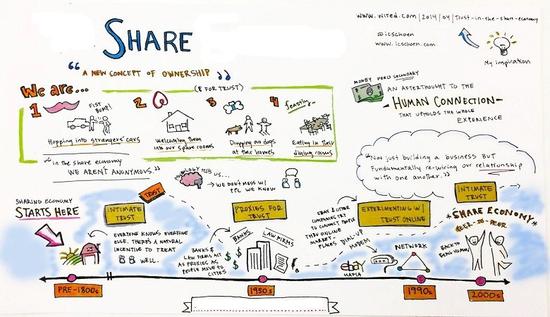 SHARE
"A NEW CONCEPT OF OWNERSHIP"
(& FOR TRUST)
www.wired.com/2014/04/trust-in-the-share-economy
@icschoen
www.icschoen.com
My inspiration
We are...
1
FIST BUMP!
Hopping into strangers' cars
2
Welcoming them into our spare rooms
3
Dropping our dogs at their homes
4
feasting
Eating in their dining rooms
MONEY FEELS SECONDARY
AN AFTERTHOUGHT TO THE
HUMAN CONNECTION
THAT UPHOLDS THE WHOLE
EXPERIENCE
"in the share economy
WE AREN'T ANONYMOUS."
"Not just building a business BUT
fundamentally re-wiring our relationship
with one another."
SHARING ECONOMY
STARTS HERE
TRUST
US...
WE DON'T MESS W/
PPL WE KNOW
INTIMATE
TRUST
PROXIES FOR
TRUST
EXPERIMENTING W/
TRUST ONLINE
INTIMATE
TRUST
EVERYONE KNOWS EVERYONE
ELSE. THERE'S A NATURAL
INCENTIVE TO TREAT
WELL.
BANKS &
LAW FIRMS ACT
AS PROXIES AS
PEOPLE MOVE TO
CITIES
BANKS
LAW FIRMS
EBAY & OTHER
COMPANIES TRY
TO CONNECT PEOPLE
THRU ONLINE
MARKET
PLACES
DIAL-UP
MODEM
ebay
NETWORK
SHARE ECONOMY
PEER-TO-PEER
BACK TO
BEING HUMAN
PRE-1800s
1950s
1990s
2000s